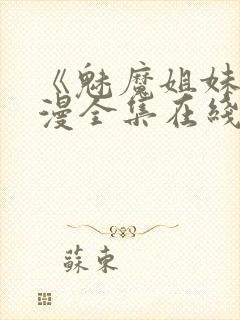 《魅魔姐妹
漫全集在线
蘇東